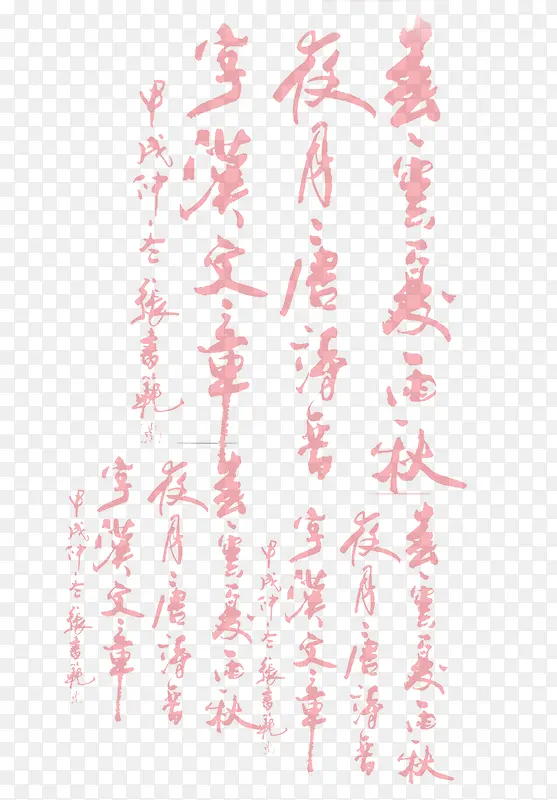 春雲夏雨秋
夜月唐詩晉
字漢文章
甲戌仲冬張書範
春雲夏雨秋
夜月唐詩晉
字漢文章
甲戌仲冬張書範
春雲夏雨秋
夜月唐詩晉
字漢文章
甲戌仲冬張書範